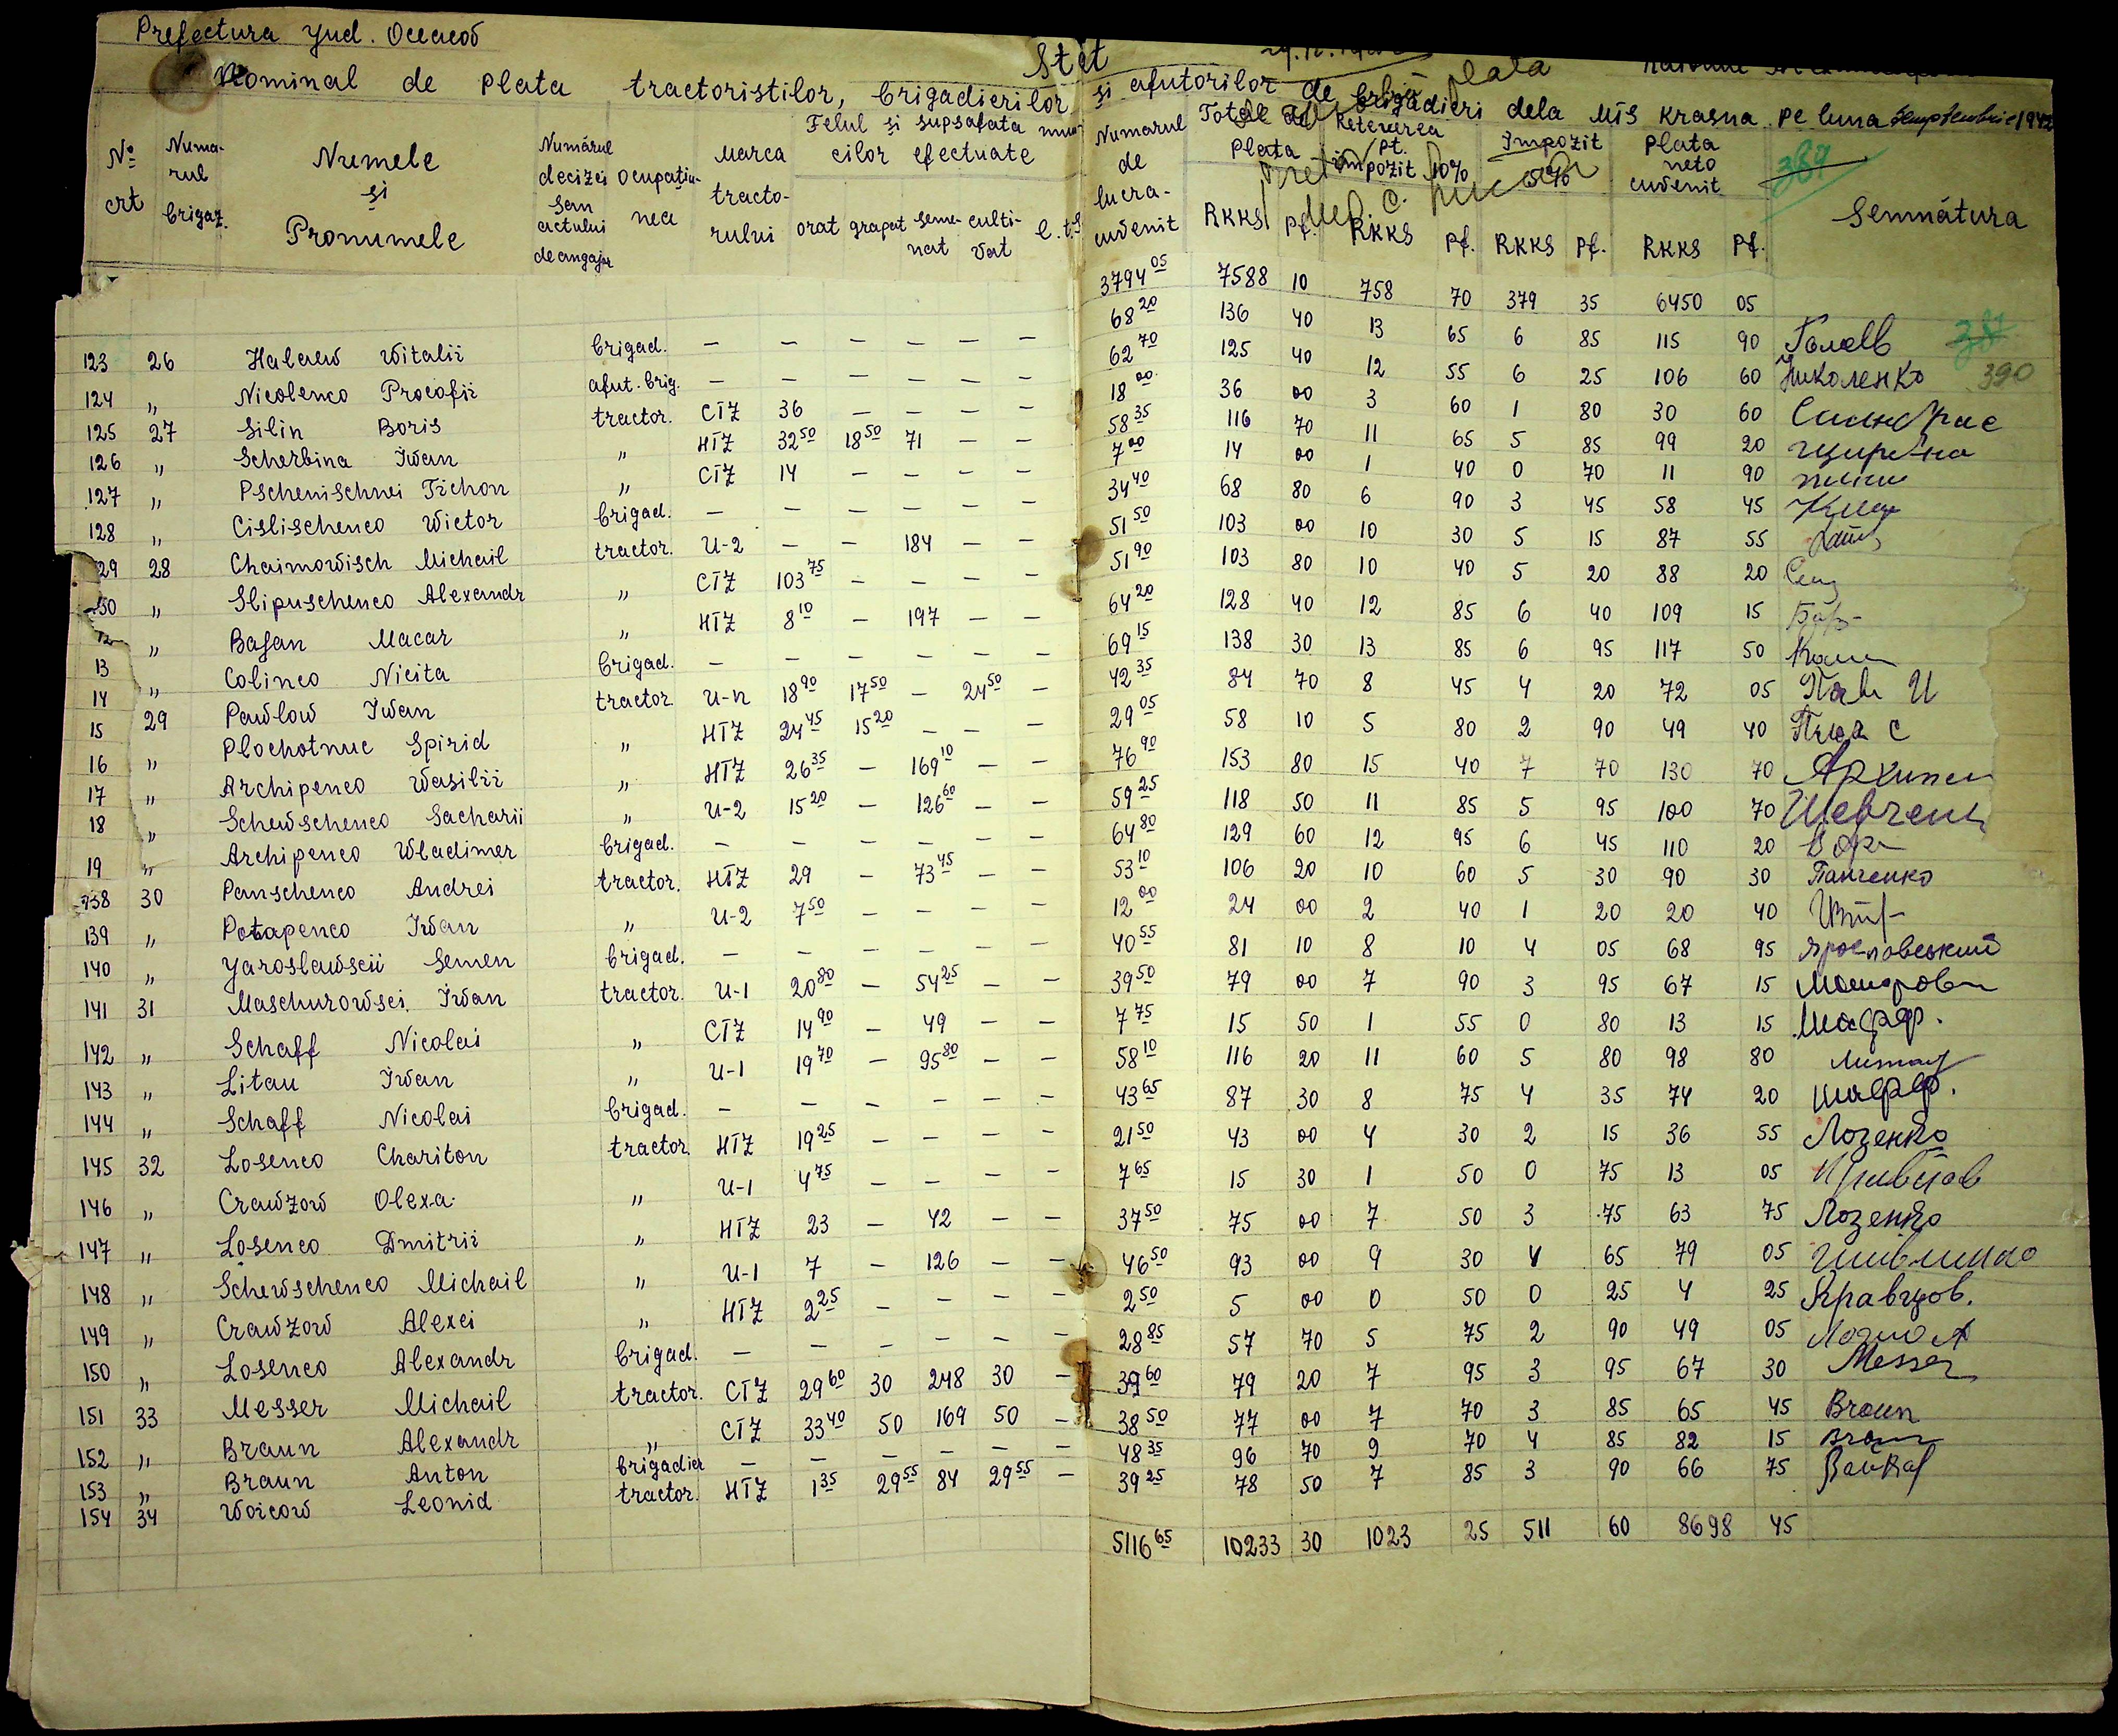 Prefectura Jud. Oceacov
Stat
Nominal de plata tractoristilor, brigadierilor și ajutorilor de brigadieri dela MTS Krasna pe luna Semptembrie 1942
387
№ crt | Numarul brigaz. | Numele și Pronumele | Numărul decizei sau actului de angajar | Ocupațiunea | Marca tractorului | Felul și supsafata muncilor efectuate | Numarul de lucra- cuvenit | Total Plata | Reteverea pt. impozit 10% | Impozit 5% | Plata neto cuvenit | Semnătura
orat | grapat | semenat | cultivat | RKKS | Pf. | RKKS | Pf. | RKKS | Pf. | RKKS | Pf.
3794 05 7588 10 758 70 379 35 6450 05
123 26 Halaew Witalii brigad. — — — — — — 68 20 136 40 13 65 6 85 115 90
124 „ Nicolenco Procofii ajut. brig. — — — — — — 62 70 125 40 12 55 6 25 106 60 Николенко 390
125 27 Silin Boris tractor. CTZ 36 — — — — 18 00 36 00 3 60 1 80 30 60
126 „ Scherbina Iwan „ HTZ 32 50 18 50 71 — — 58 35 116 70 11 65 5 85 99 20
127 „ Pschenischnei Tichon „ CTZ 14 — — — — 7 00 14 00 1 40 0 70 11 90
128 „ Cislischenco Wictor brigad. — — — — — — 34 40 68 80 6 90 3 45 58 45
29 28 Chaimowisch Michail tractor. U-2 — — 184 — — 51 50 103 00 10 30 5 15 87 55
30 „ Slipuschenco Alexandr „ CTZ 103 75 — — — — 51 90 103 80 10 40 5 20 88 20
„ Bajan Macar „ HTZ 8 10 — 197 — — 64 20 128 40 12 85 6 40 109 15
13 „ Colinco Nicita brigad. — — — — — — 69 15 138 30 13 85 6 95 117 50
14 29 Pawlow Iwan tractor U-n 18 90 17 50 — 24 50 — 42 35 84 70 8 45 4 20 72 05
15 „ Plochotnuc Spirid „ HTZ 24 45 15 20 — — — 29 05 58 10 5 80 2 90 49 40
16 „ Archipenco Wasilii „ HTZ 26 35 — 169 10 — — 76 90 153 80 15 40 7 70 130 70
17 „ Schewschenco Sacharii „ U-2 15 20 — 126 60 — — 59 25 118 50 11 85 5 95 100 70
18 „ Archipenco Wladimer brigad. — — — — — — 64 80 129 60 12 95 6 45 110 20
138 30 Panschenco Andrei tractor. HTZ 29 — 73 45 — — 53 10 106 20 10 60 5 30 90 30 Панченко
139 „ Potapenco Iwan „ U-2 7 50 — — — — 12 00 24 00 2 40 1 20 20 40
140 „ Yaroslawscii Semen brigad. — — — — — — 40 55 81 10 8 10 4 05 68 95
141 31 Maschurowsci Iwan tractor. U-1 20 80 — 54 25 — — 39 50 79 00 7 90 3 95 67 15
142 „ Schaff Nicolai „ CTZ 14 90 — 49 — — 7 75 15 50 1 55 0 80 13 15 Шафф.
143 „ Litau Iwan „ U-1 19 70 — 95 80 — — 58 10 116 20 11 60 5 80 98 80
144 „ Schaff Nicolai brigad. — — — — — — 43 65 87 30 8 75 4 35 74 20 Шафф.
145 32 Losenco Chariton tractor. HTZ 19 25 — — — — 21 50 43 00 4 30 2 15 36 55 Лозенко
146 „ Crawzow Olexa „ U-1 4 75 — — — — 7 65 15 30 1 50 0 75 13 05
147 „ Losenco Dmitrii „ HTZ 23 — 42 — — 37 50 75 00 7 50 3 75 63 75 Лозенко
148 „ Schewschenco Michail „ U-1 7 — 126 — — 46 50 93 00 9 30 4 65 79 05
149 „ Crawzow Alexei „ HTZ 2 25 — — — — 2 50 5 00 0 50 0 25 4 25 Кравцов.
150 „ Losenco Alexandr brigad. — — — — — — 28 85 57 70 5 75 2 90 49 05
151 33 Messer Michail tractor. CTZ 29 60 30 248 30 — 39 60 79 20 7 95 3 95 67 30 Messer
152 „ Braun Alexandr „ CTZ 33 40 50 169 50 — 38 50 77 00 7 70 3 85 65 45 Braun
153 „ Braun Anton brigadier — — — — — — 48 35 96 70 9 70 4 85 82 15 Braun
154 34 Woicow Leonid tractor. HTZ 1 35 29 55 84 29 55 — 39 25 78 50 7 85 3 90 66 75
5116 65 10233 30 1023 25 511 60 8698 45